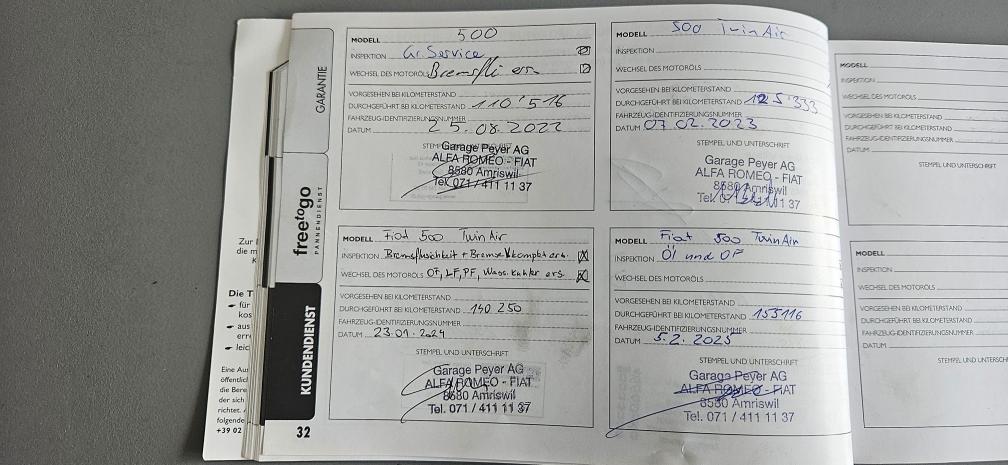 GARANTIE
freetogo
PANNENDIENST
KUNDENDIENST
32
MODELL 500
INSPEKTION Gr. Service
WECHSEL DES MOTORÖLS Bremsflü ers.
VORGESEHEN BEI KILOMETERSTAND
DURCHGEFÜHRT BEI KILOMETERSTAND 110'516
FAHRZEUG-IDENTIFIZIERUNGSNUMMER
DATUM 25.08.2022
STEMPEL UND UNTERSCHRIFT
Garage Peyer AG
ALFA ROMEO - FIAT
8580 Amriswil
Tel. 071 / 411 11 37
MODELL 500 TwinAir
INSPEKTION
WECHSEL DES MOTORÖLS
VORGESEHEN BEI KILOMETERSTAND
DURCHGEFÜHRT BEI KILOMETERSTAND 125'333
FAHRZEUG-IDENTIFIZIERUNGSNUMMER
DATUM 07.02.2023
STEMPEL UND UNTERSCHRIFT
Garage Peyer AG
ALFA ROMEO - FIAT
8580 Amriswil
Tel. 071 / 411 11 37
MODELL Fiat 500 TwinAir
INSPEKTION Bremsflüssigkeit + Bremse komplett ers.
WECHSEL DES MOTORÖLS OF, LF, PF, Wass. Kühler ers.
VORGESEHEN BEI KILOMETERSTAND
DURCHGEFÜHRT BEI KILOMETERSTAND 140 250
FAHRZEUG-IDENTIFIZIERUNGSNUMMER
DATUM 23.01.2024
STEMPEL UND UNTERSCHRIFT
Garage Peyer AG
ALFA ROMEO - FIAT
8580 Amriswil
Tel. 071 / 411 11 37
MODELL Fiat 500 TwinAir
INSPEKTION Öl und OF
WECHSEL DES MOTORÖLS
VORGESEHEN BEI KILOMETERSTAND
DURCHGEFÜHRT BEI KILOMETERSTAND 155116
FAHRZEUG-IDENTIFIZIERUNGSNUMMER
DATUM 5.2.2025
STEMPEL UND UNTERSCHRIFT
Garage Peyer AG
ALFA ROMEO - FIAT
8580 Amriswil
Tel. 071 / 411 11 37
MODELL
INSPEKTION
WECHSEL DES MOTORÖLS
VORGESEHEN BEI KILOMETERSTAND
DURCHGEFÜHRT BEI KILOMETERSTAND
FAHRZEUG-IDENTIFIZIERUNGSNUMMER
DATUM
STEMPEL UND UNTERSCHRIFT
MODELL
INSPEKTION
WECHSEL DES MOTORÖLS
VORGESEHEN BEI KILOMETERSTAND
DURCHGEFÜHRT BEI KILOMETERSTAND
FAHRZEUG-IDENTIFIZIERUNGSNUMMER
DATUM
STEMPEL UND UNTERSCH
Zur
die m
Die T
für
kos
aus
erre
leic
Eine Aus
öffentlich
die Bere
der sich
richtet.
folgende
+39 02